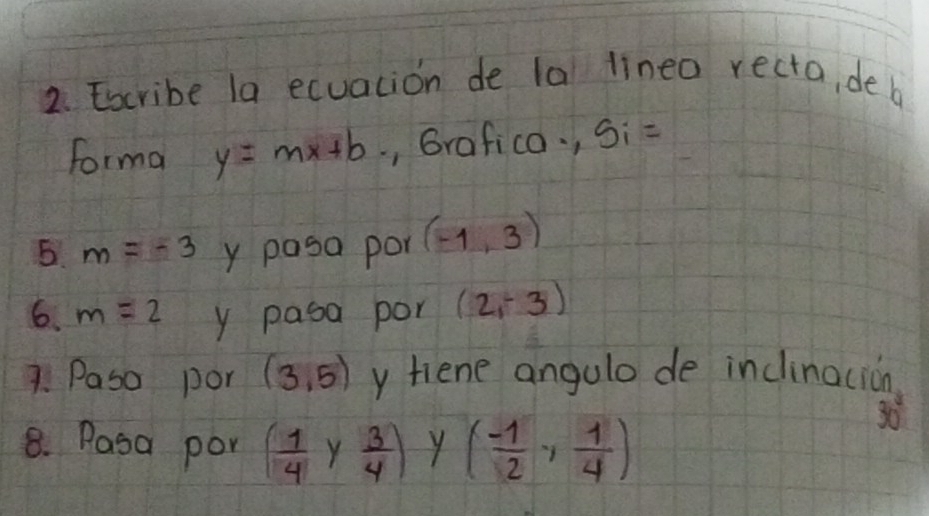 2. Escribe la ecuación de la linea recta, de la
forma y = mx+b., Grafica., Si =
5. m = -3 y pasa por (-1, 3)
6. m = 2 y pasa por (2,-3)
7. Pasa por (3,5) y tiene angulo de inclinación
30°
8. Pasa por (1/4 y 3/4) y (-1/2, 1/4)